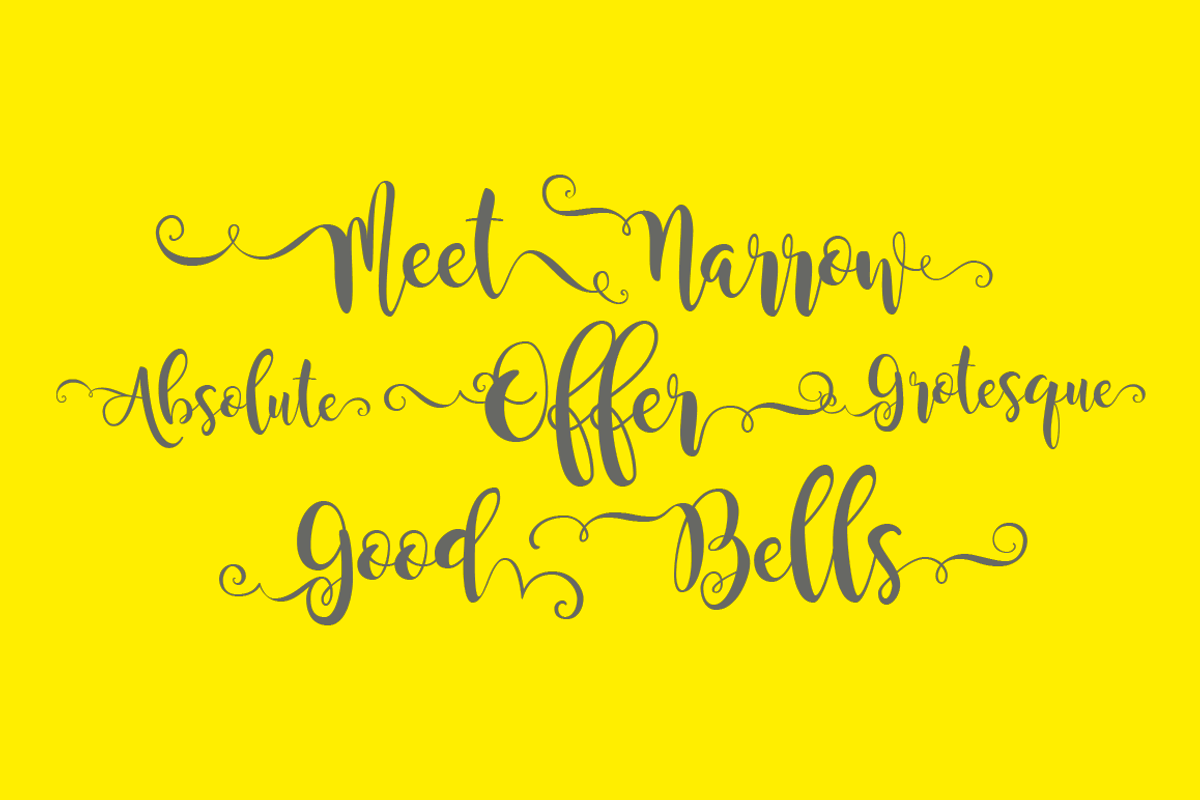 Meet Narrow
Absolute Offer Grotesque
Good Bells